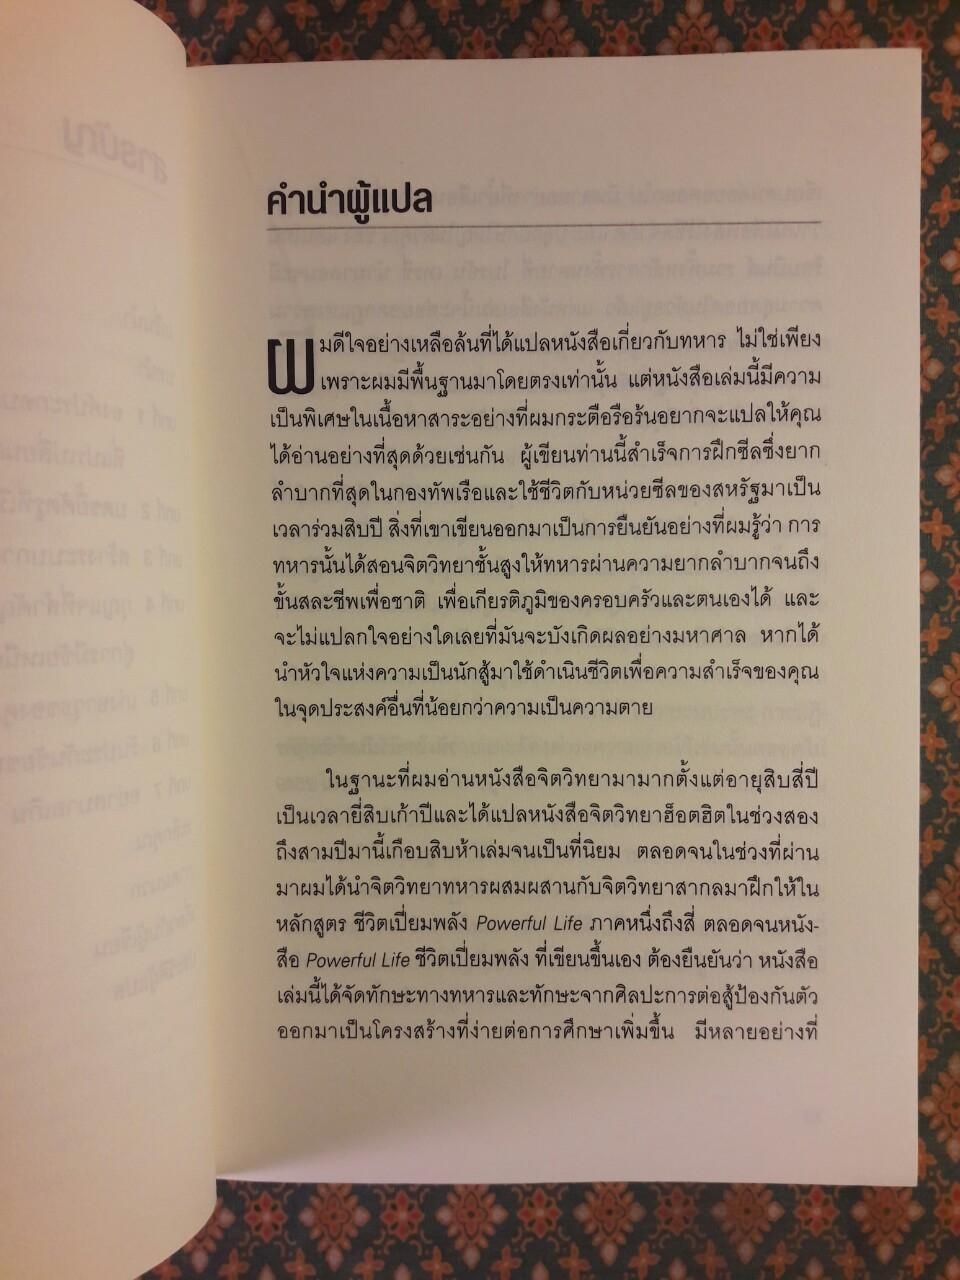 คำนำผู้แปล
ผมดีใจอย่างเหลือล้นที่ได้แปลหนังสือเกี่ยวกับทหาร ไม่ใช่เพียง
เพราะผมมีพื้นฐานมาโดยตรงเท่านั้น แต่หนังสือเล่มนี้มีความ
เป็นพิเศษในเนื้อหาสาระอย่างที่ผมกระตือรือร้นอยากจะแปลให้คุณ
ได้อ่านอย่างที่สุดด้วยเช่นกัน ผู้เขียนท่านนี้สำเร็จการฝึกซีลซึ่งยาก
ลำบากที่สุดในกองทัพเรือและใช้ชีวิตกับหน่วยซีลของสหรัฐมาเป็น
เวลาร่วมสิบปี สิ่งที่เขาเขียนออกมาเป็นการยืนยันอย่างที่ผมรู้ว่า การ
ทหารนั้นได้สอนจิตวิทยาชั้นสูงให้ทหารผ่านความยากลำบากจนถึง
ขั้นสละชีพเพื่อชาติ เพื่อเกียรติภูมิของครอบครัวและตนเองได้ และ
จะไม่แปลกใจอย่างใดเลยที่มันจะบังเกิดผลอย่างมหาศาล หากได้
นำหัวใจแห่งความเป็นนักสู้มาใช้ดำเนินชีวิตเพื่อความสำเร็จของคุณ
ในจุดประสงค์อื่นที่น้อยกว่าความเป็นความตาย
ในฐานะที่ผมอ่านหนังสือจิตวิทยามามากตั้งแต่อายุสิบสี่ปี
เป็นเวลายี่สิบเก้าปีและได้แปลหนังสือจิตวิทยาฮ็อตฮิตในช่วงสอง
ถึงสามปีมานี้เกือบสิบห้าเล่มจนเป็นที่นิยม ตลอดจนในช่วงที่ผ่าน
มาผมได้นำจิตวิทยาทหารผสมผสานกับจิตวิทยาสากลมาฝึกให้ใน
หลักสูตร ชีวิตเปี่ยมพลัง Powerful Life ภาคหนึ่งถึงสี่ ตลอดจนหนัง-
สือ Powerful Life ชีวิตเปี่ยมพลัง ที่เขียนขึ้นเอง ต้องยืนยันว่า หนังสือ
เล่มนี้ได้จัดทักษะทางทหารและทักษะจากศิลปะการต่อสู้ป้องกันตัว
ออกมาเป็นโครงสร้างที่ง่ายต่อการศึกษาเพิ่มขึ้น มีหลายอย่างที่